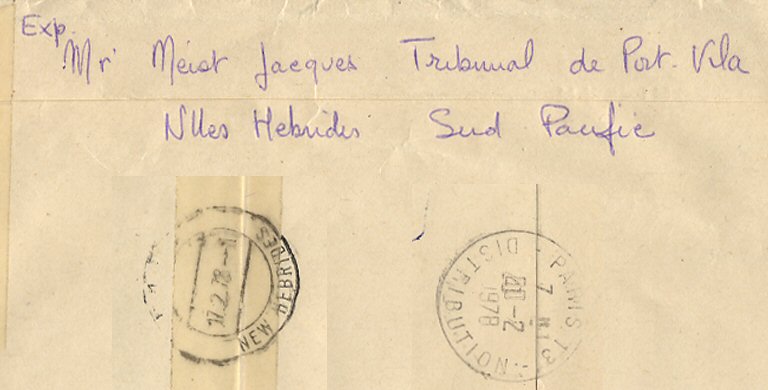 Exp.
Mr Meist Jacques Tribunal de Port-Vila
Nlles Hebrides Sud Pacific
17.2.78
NEW HEBRIDES
PARIS 13
DISTRIBUTION
-2
1978